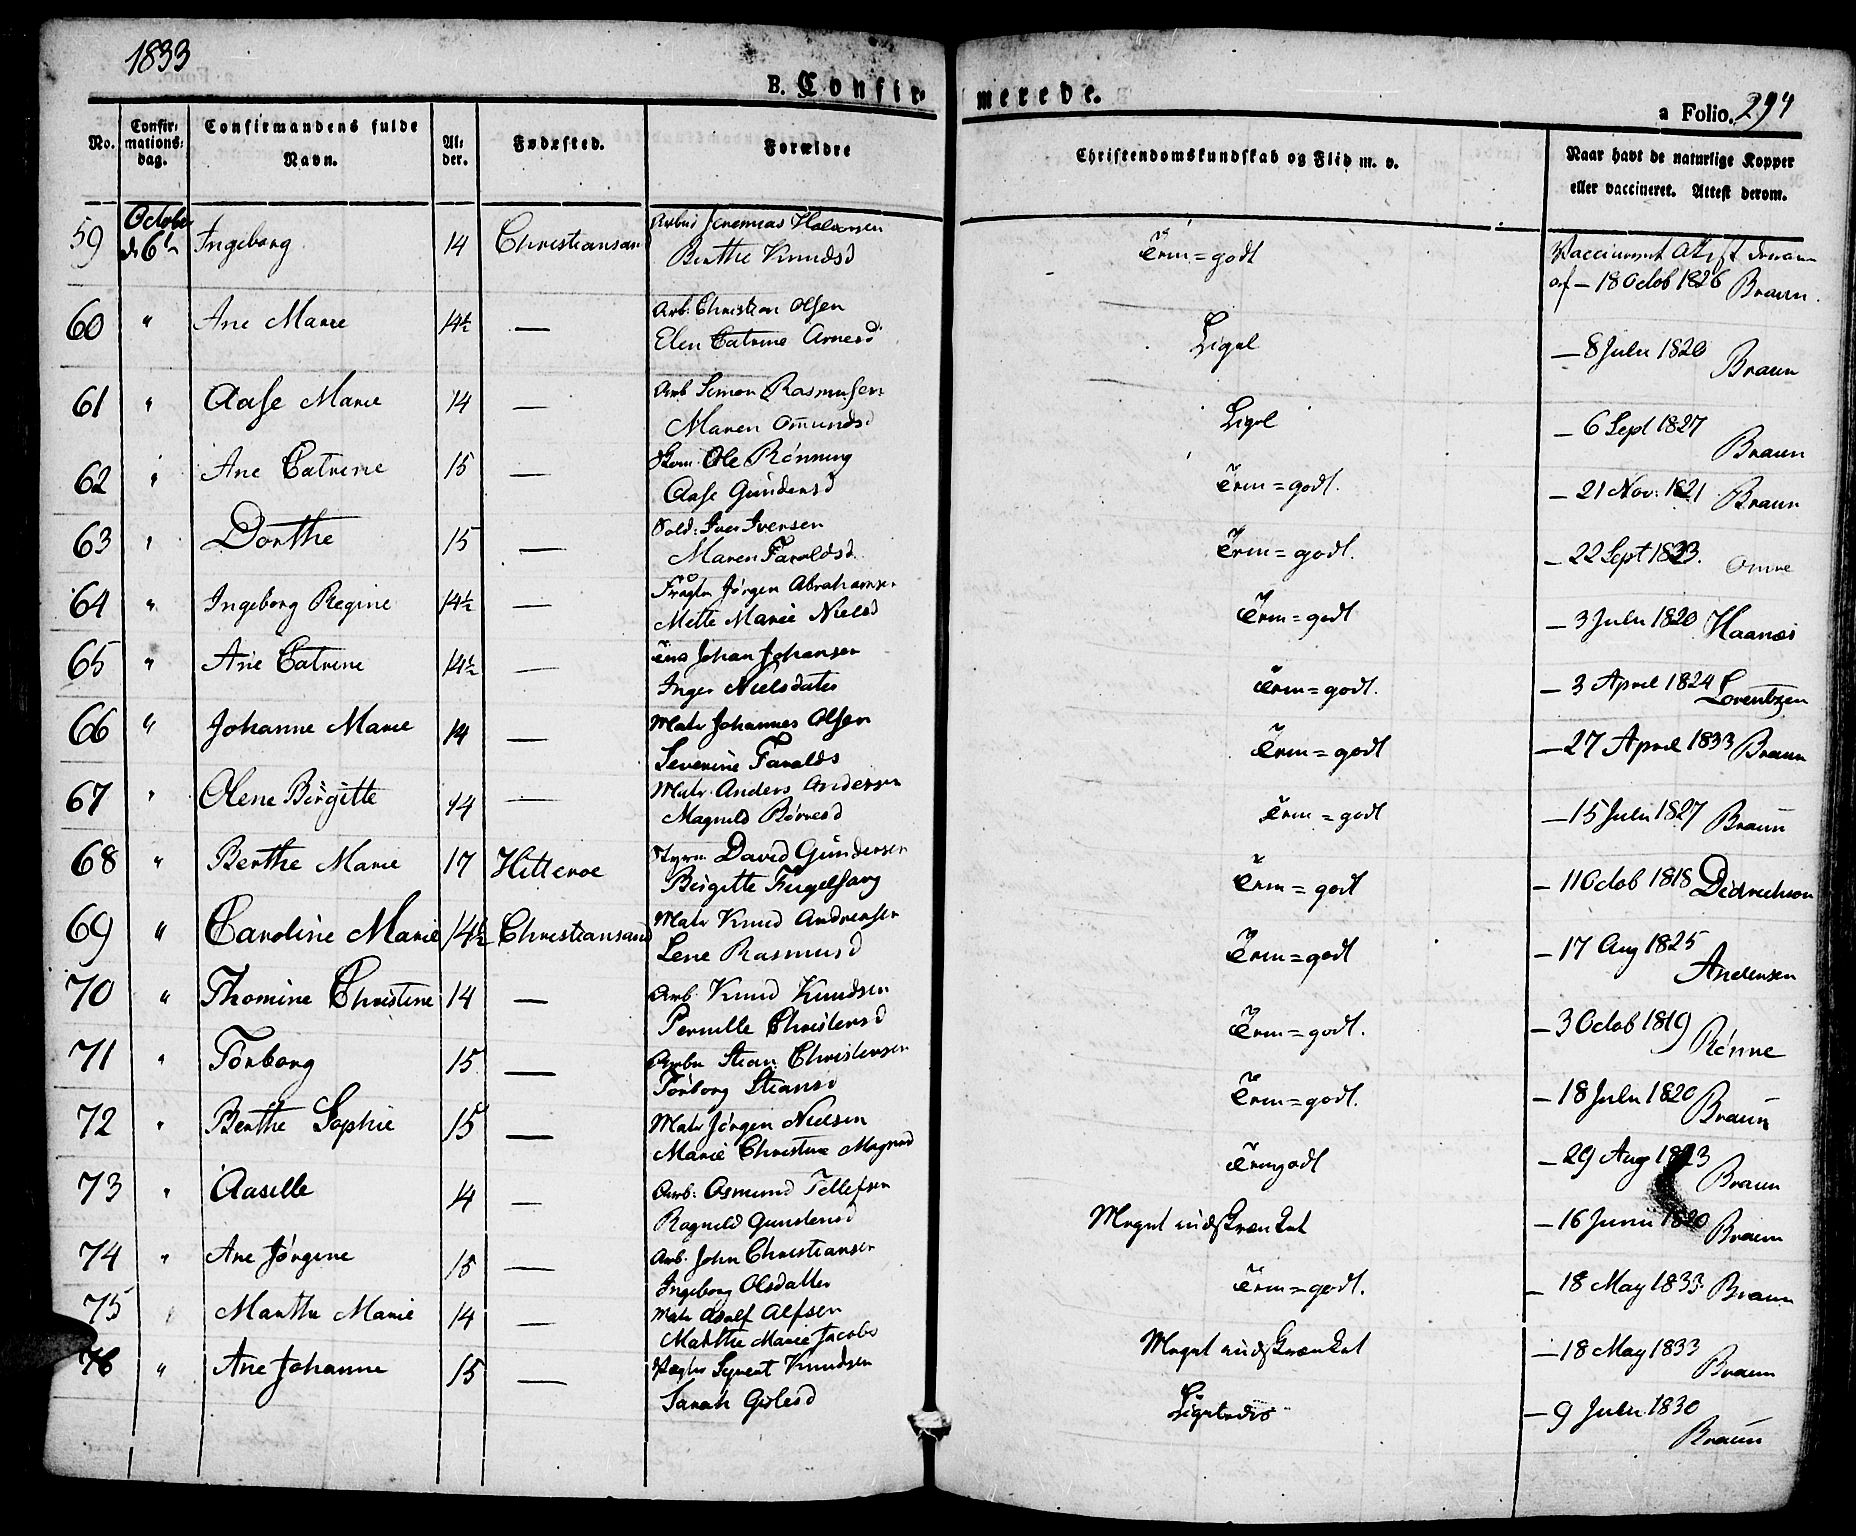 1833
B. Confirmerede.
a Folio. 294
No.
Confirmations-dag.
Confirmandens fulde Navn.
Alder.
Fødested.
Forældre
Christendomskundskab og Flid m. v.
Naar havt de naturlige Kopper eller vaccineret. Attest derom.
59 October d. 6te Ingeborg 14 Christiansand Jeremias Halvorsen = godt
Berthe Knudsd af – 18 Octob 1826 Braun
60 " Ane Marie 14½ — Arb: Christian Olsen Ligel — 8 Julu 1820 Braun
Elen Catrine Arnesd
61 " Aase Marie 14 — Arb Simon Rasmusen Ligel — 6 Sept 1827 Braun
Maren Omundsd
62 " Ane Catrine 15 — Ole Rönning = godt. — 21 Nov: 1821 Braun
Aase Gundersd
63 " Dorthe 15 — Sold: Iver Iversen = godt. — 22 Sept 1833. Omre
Maren Faroldsd.
64 " Ingeborg Regine 14½ — Jörgen Abrahamsen = godt — 3 Julu 1820 Haanæs
Mette Marie Nielsd
65 " Ane Catrine 14½ — Johan Johansen = godt. — 3 April 1824 Lorentzen
Inger Nielsdater
66 " Johanne Marie 14 — Matr Johannes Olsen = godt — 27 April 1833 Braun
Severine Farolds
67 " Olene Birgitte 14 — Matr. Anders Andersen = godt — 15 Julu 1827 Braun
Magnild Börresd
68 " Berthe Marie 17 Hitteroe Styrm David Gundersen = godt — 11 Octob 1818 Didrichson
Birgitte Fugelsang
69 " Caroline Marie 14½ Christiansand Matr Knud Andrensen = godt — 17 Aug 1825 Andersen
Lene Rasmusd
70 " Thomine Christine 14 — Arb: Knud Knudsen = godt. — 3 Octob 1819 Rönne
Pernille Christensd
71 " Torborg 15 — Stian Christensen = godt. — 18 Julu 1820 Braun
Törborg Stiansd
72 " Berthe Sophie 15 — Matr Jörgen Nielsen godt — 29 Aug 1823 Braun
Marie Christine Magnsd
73 " Aaselle 14 — Arb: Osmund Tellefsen Meget indskrænket — 16 Juni 1820 Braun
Ragnild Gunstensd
74 " Ane Jörgine 15 — Arb: John Christiansen = godt. — 18 May 1833 Braun
Ingeborg Olsdatter
75 " Marthe Marie 14 — Matr Adolf Alfsen Meget indskrænket — 18 May 1833 Braun
Marthe Marie Jacobs
76 " Ane Johanne 15 — Syvert Knudsen Ligeledes — 9 Julu 1830 Braun
Sarah Gislesd